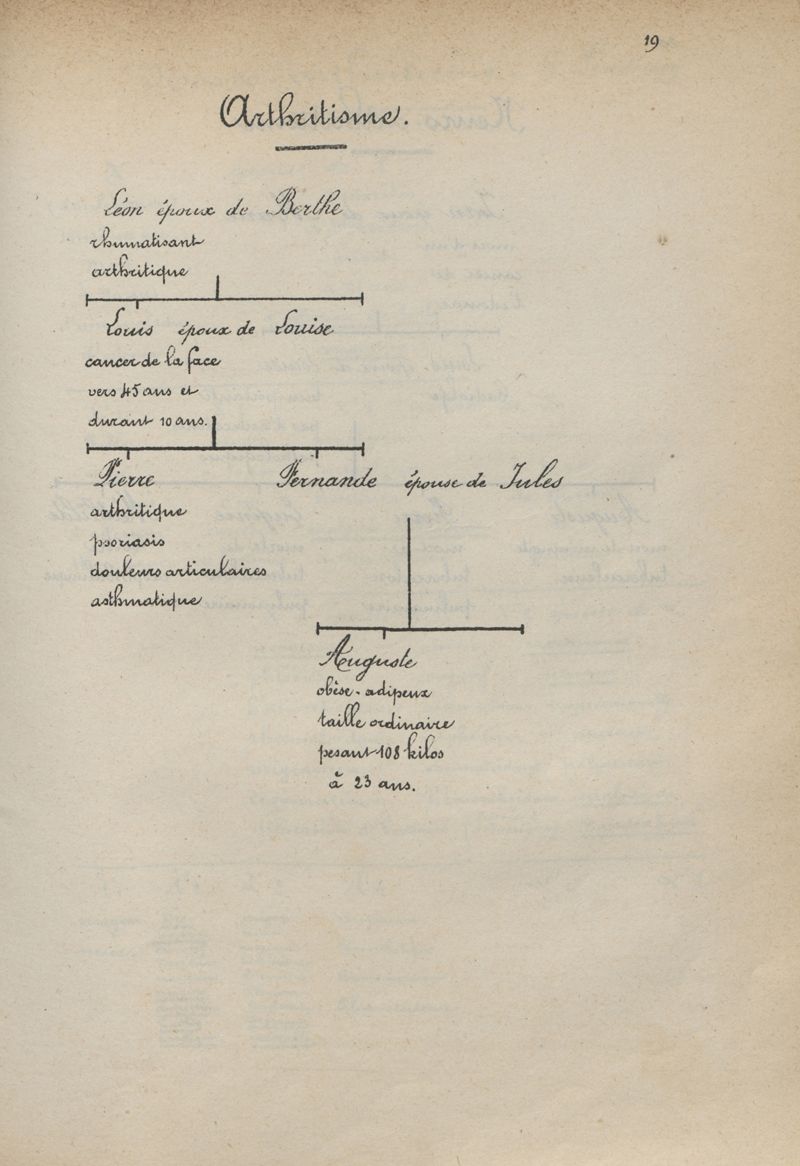 19
Arthritisme.
Léon époux de Berthe
rhumatisant
arthritique
Louis époux de Louise
cancer de la face
vers 45 ans et
durant 10 ans.
Pierre
arthritique
psoriasis
douleurs articulaires
asthmatique
Fernande épouse de Jules
Auguste
obèse - adipeux
taille ordinaire
pesant 108 kilos
à 23 ans.